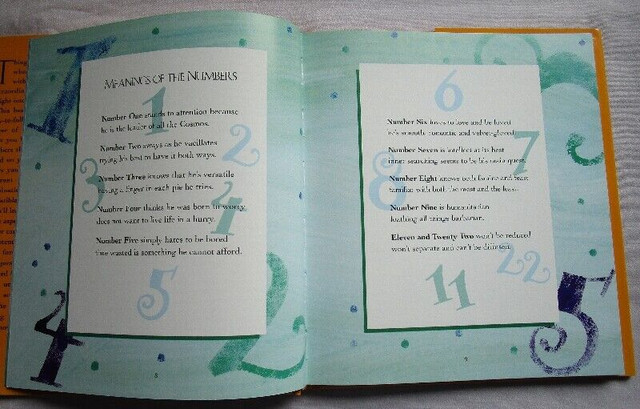 MEANINGS OF THE NUMBERS
Number One stands to attention because
he is the leader of all the Cosmos.
Number Two sways as he vacillates
trying his best to have it both ways.
Number Three knows that he's versatile
having a finger in each pie he tries.
Number Four thinks he was born to worry
does not want to live life in a hurry.
Number Five simply hates to be bored
time wasted is something he cannot afford.
Number Six loves to love and be loved
smooth romantic and velvet-gloved.
Number Seven is
inner searching seems to be his
Number Eight knows both and
familiar with both the most and the least.
Number Nine is humanitarian
loathing all things barbarian.
Eleven and Twenty Two won't be reduced
won't separate and can't be
1
2
3
4
5
6
7
8
11
22
1
4
2
5